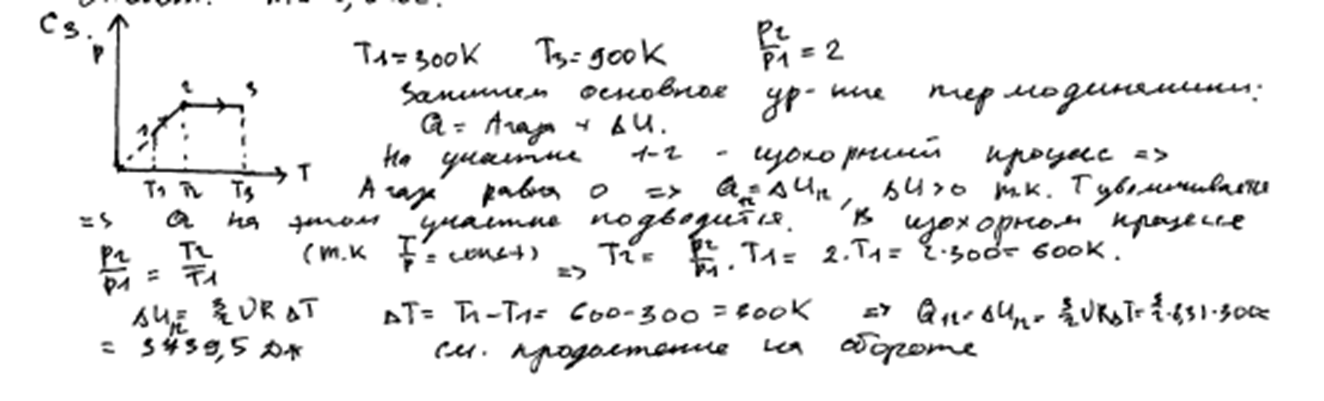 С3.
p
1 2 3
T1 T2 T3 T
T1=300K T3=900K p2/p1 = 2
Запишем основное ур-ние термодинамики:
Q = Aгаза + ΔU.
На участке 1-2 - изохорный процесс =>
Aгаза равна 0 => Q12=ΔU12, ΔU>0 т.к. T увеличивается
=> Q на этом участке подводится. В изохорном процессе
p2/p1 = T2/T1 (т.к T/p = const) => T2 = p2/p1 · T1 = 2·T1 = 2·300= 600K.
ΔU12= 3/2 νRΔT ΔT= T2-T1= 600-300 = 300K => Q12=ΔU12= 3/2 νRΔT= 3/2·8,31·300=
= 3739,5 Дж см. продолжение на обороте